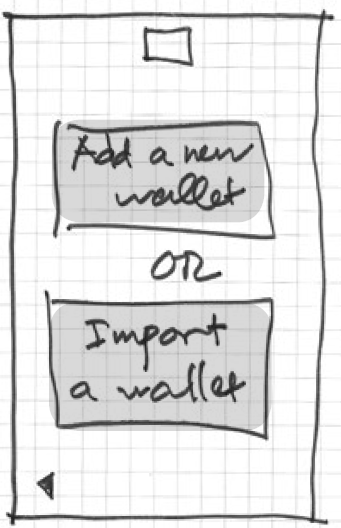 Add a new
wallet
OR
Import
a wallet